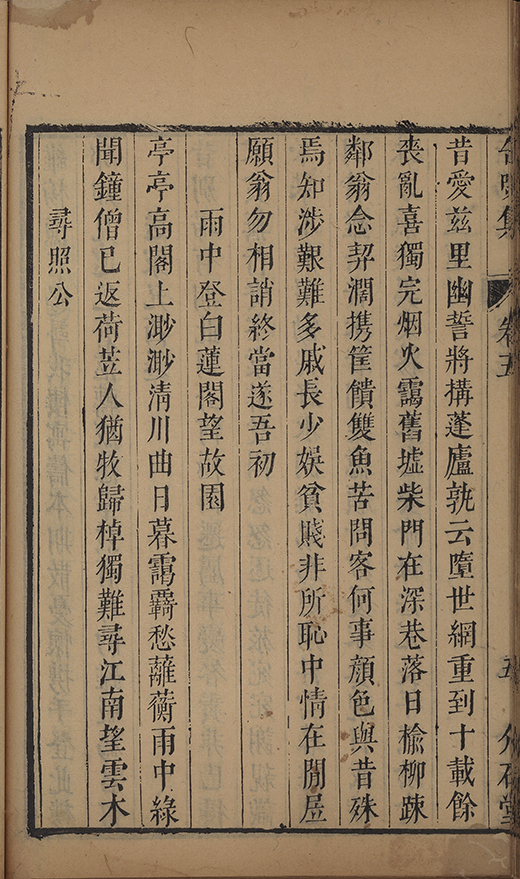 集 卷五 五 介石堂
昔愛茲里幽誓將搆蓬廬孰云墮世網重到十載餘
喪亂喜獨完烟火靄舊墟柴門在深巷落日榆柳疎
鄰翁念契濶携筐饋雙魚苦問客何事顏色與昔殊
焉知涉艱難多戚長少娛貧賤非所恥中情在閒居
願翁勿相誚終當遂吾初
雨中登白蓮閣望故園
亭亭高閣上渺渺清川曲日暮靄覊愁蘺蘅雨中綠
聞鐘僧已返荷苙人猶牧歸棹獨難尋江南望雲木
尋照公